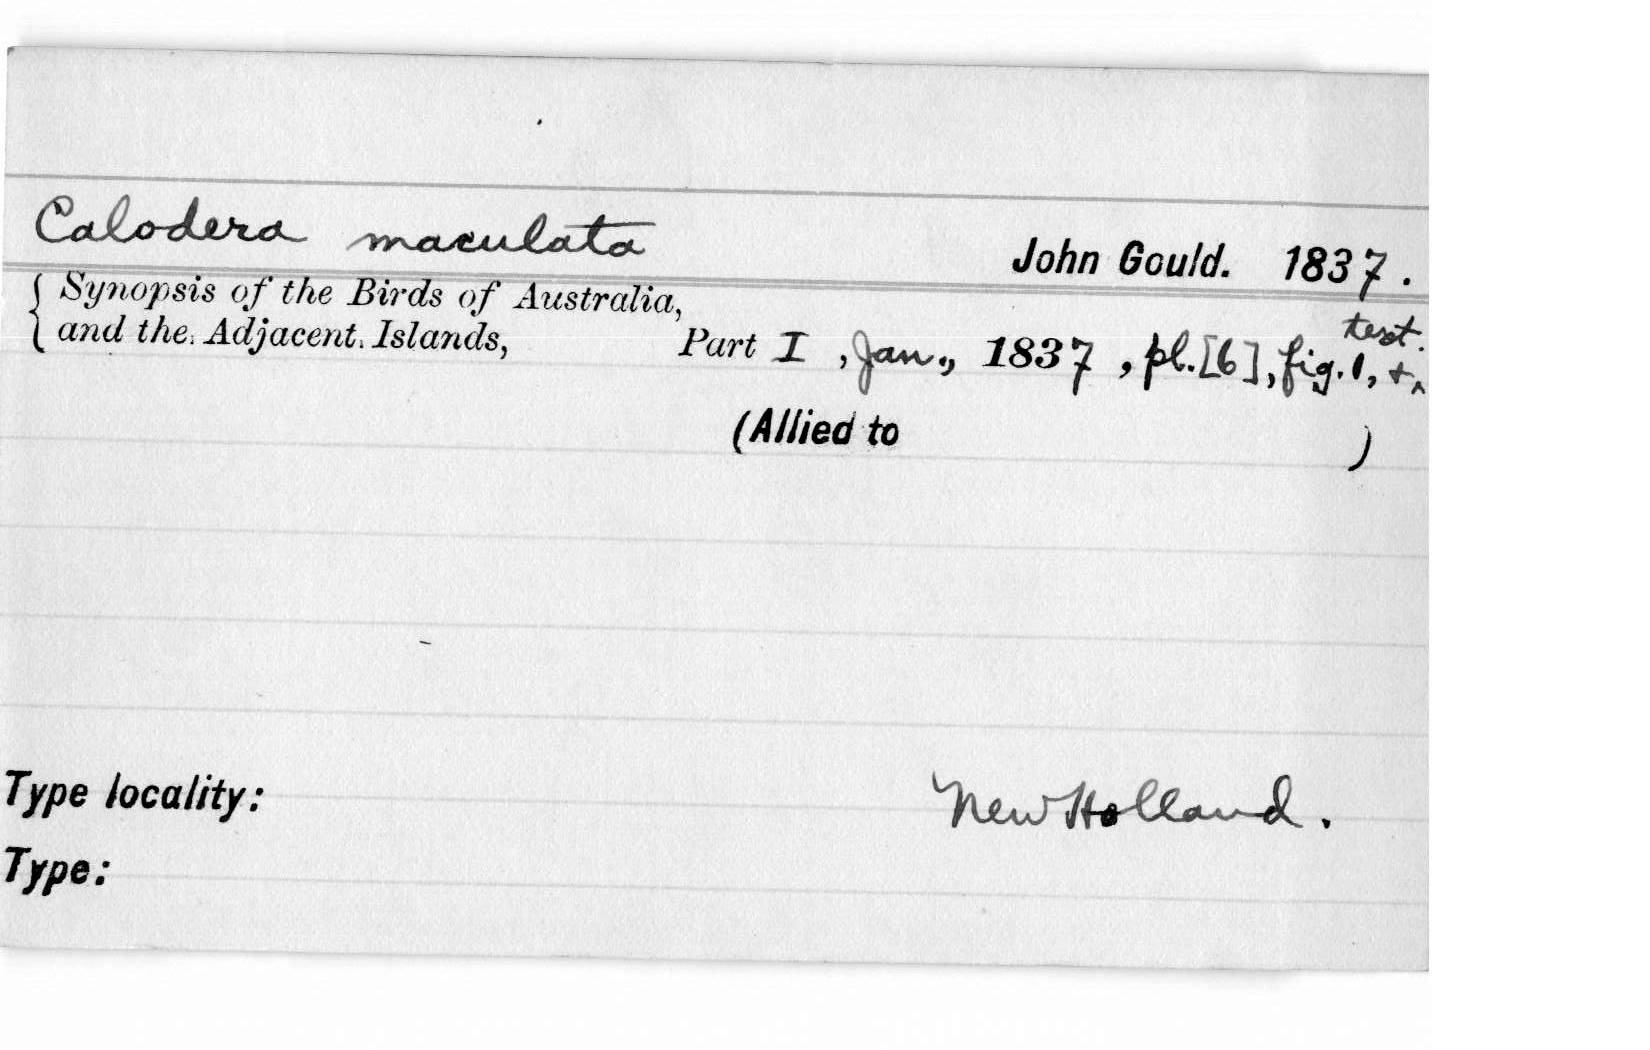 Calodera maculata
John Gould. 1837.
{ Synopsis of the Birds of Australia,
and the Adjacent Islands, Part I, Jan., 1837, pl.[6], fig.1, +‸ text.
(Allied to )
Type locality: New Holland.
Type: